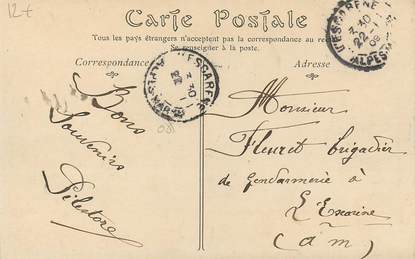 12+
Carte Postale
Tous les pays étrangers n'acceptent pas la correspondance au re
Se renseigner à la poste.
Correspondance
Adresse
L'ESCARENE
3 30
22
09
ALPES M
L'ESCARENE
3 30
22
ALPES M
Bons
Souvenirs
Monsieur
Fleuret brigadier
de Gendarmerie à
L'Escarène
(a m)